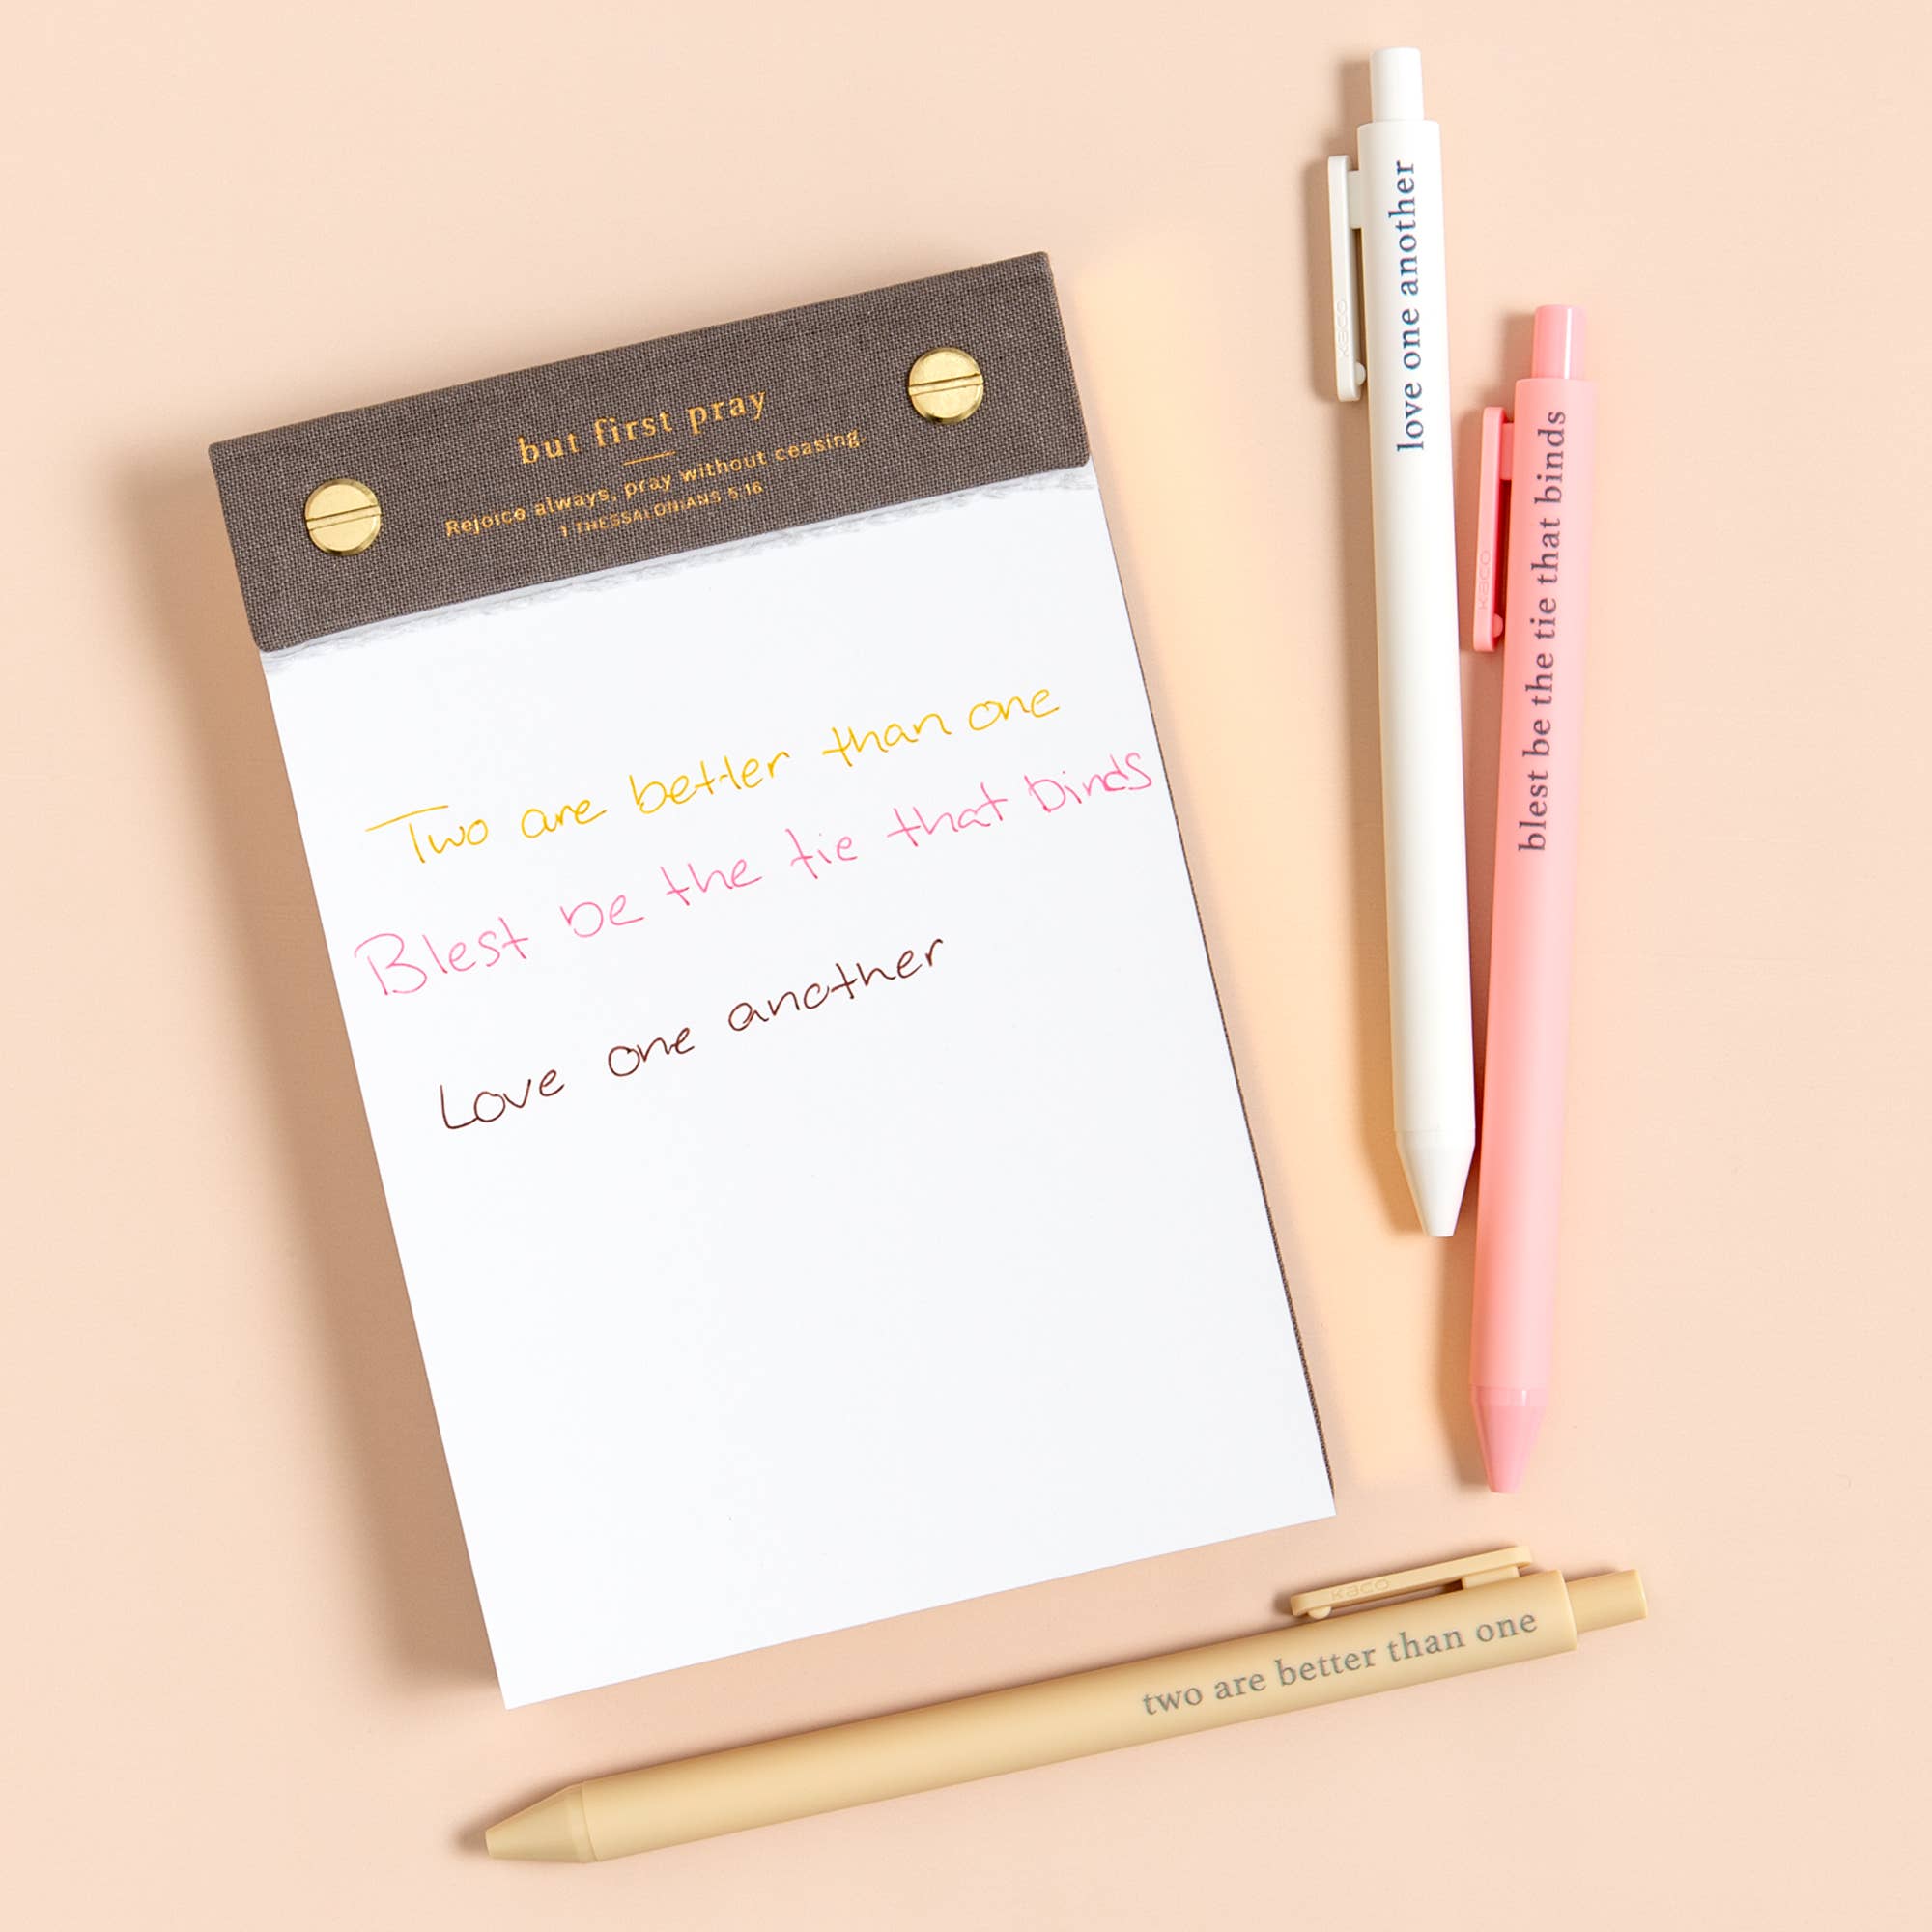 but first pray
Rejoice always, pray without ceasing.
1 THESSALONIANS 5:16
Two are better than one
Blest be the tie that binds
Love one another
love one another
KACO
blest be the tie that binds
KACO
two are better than one
KACO